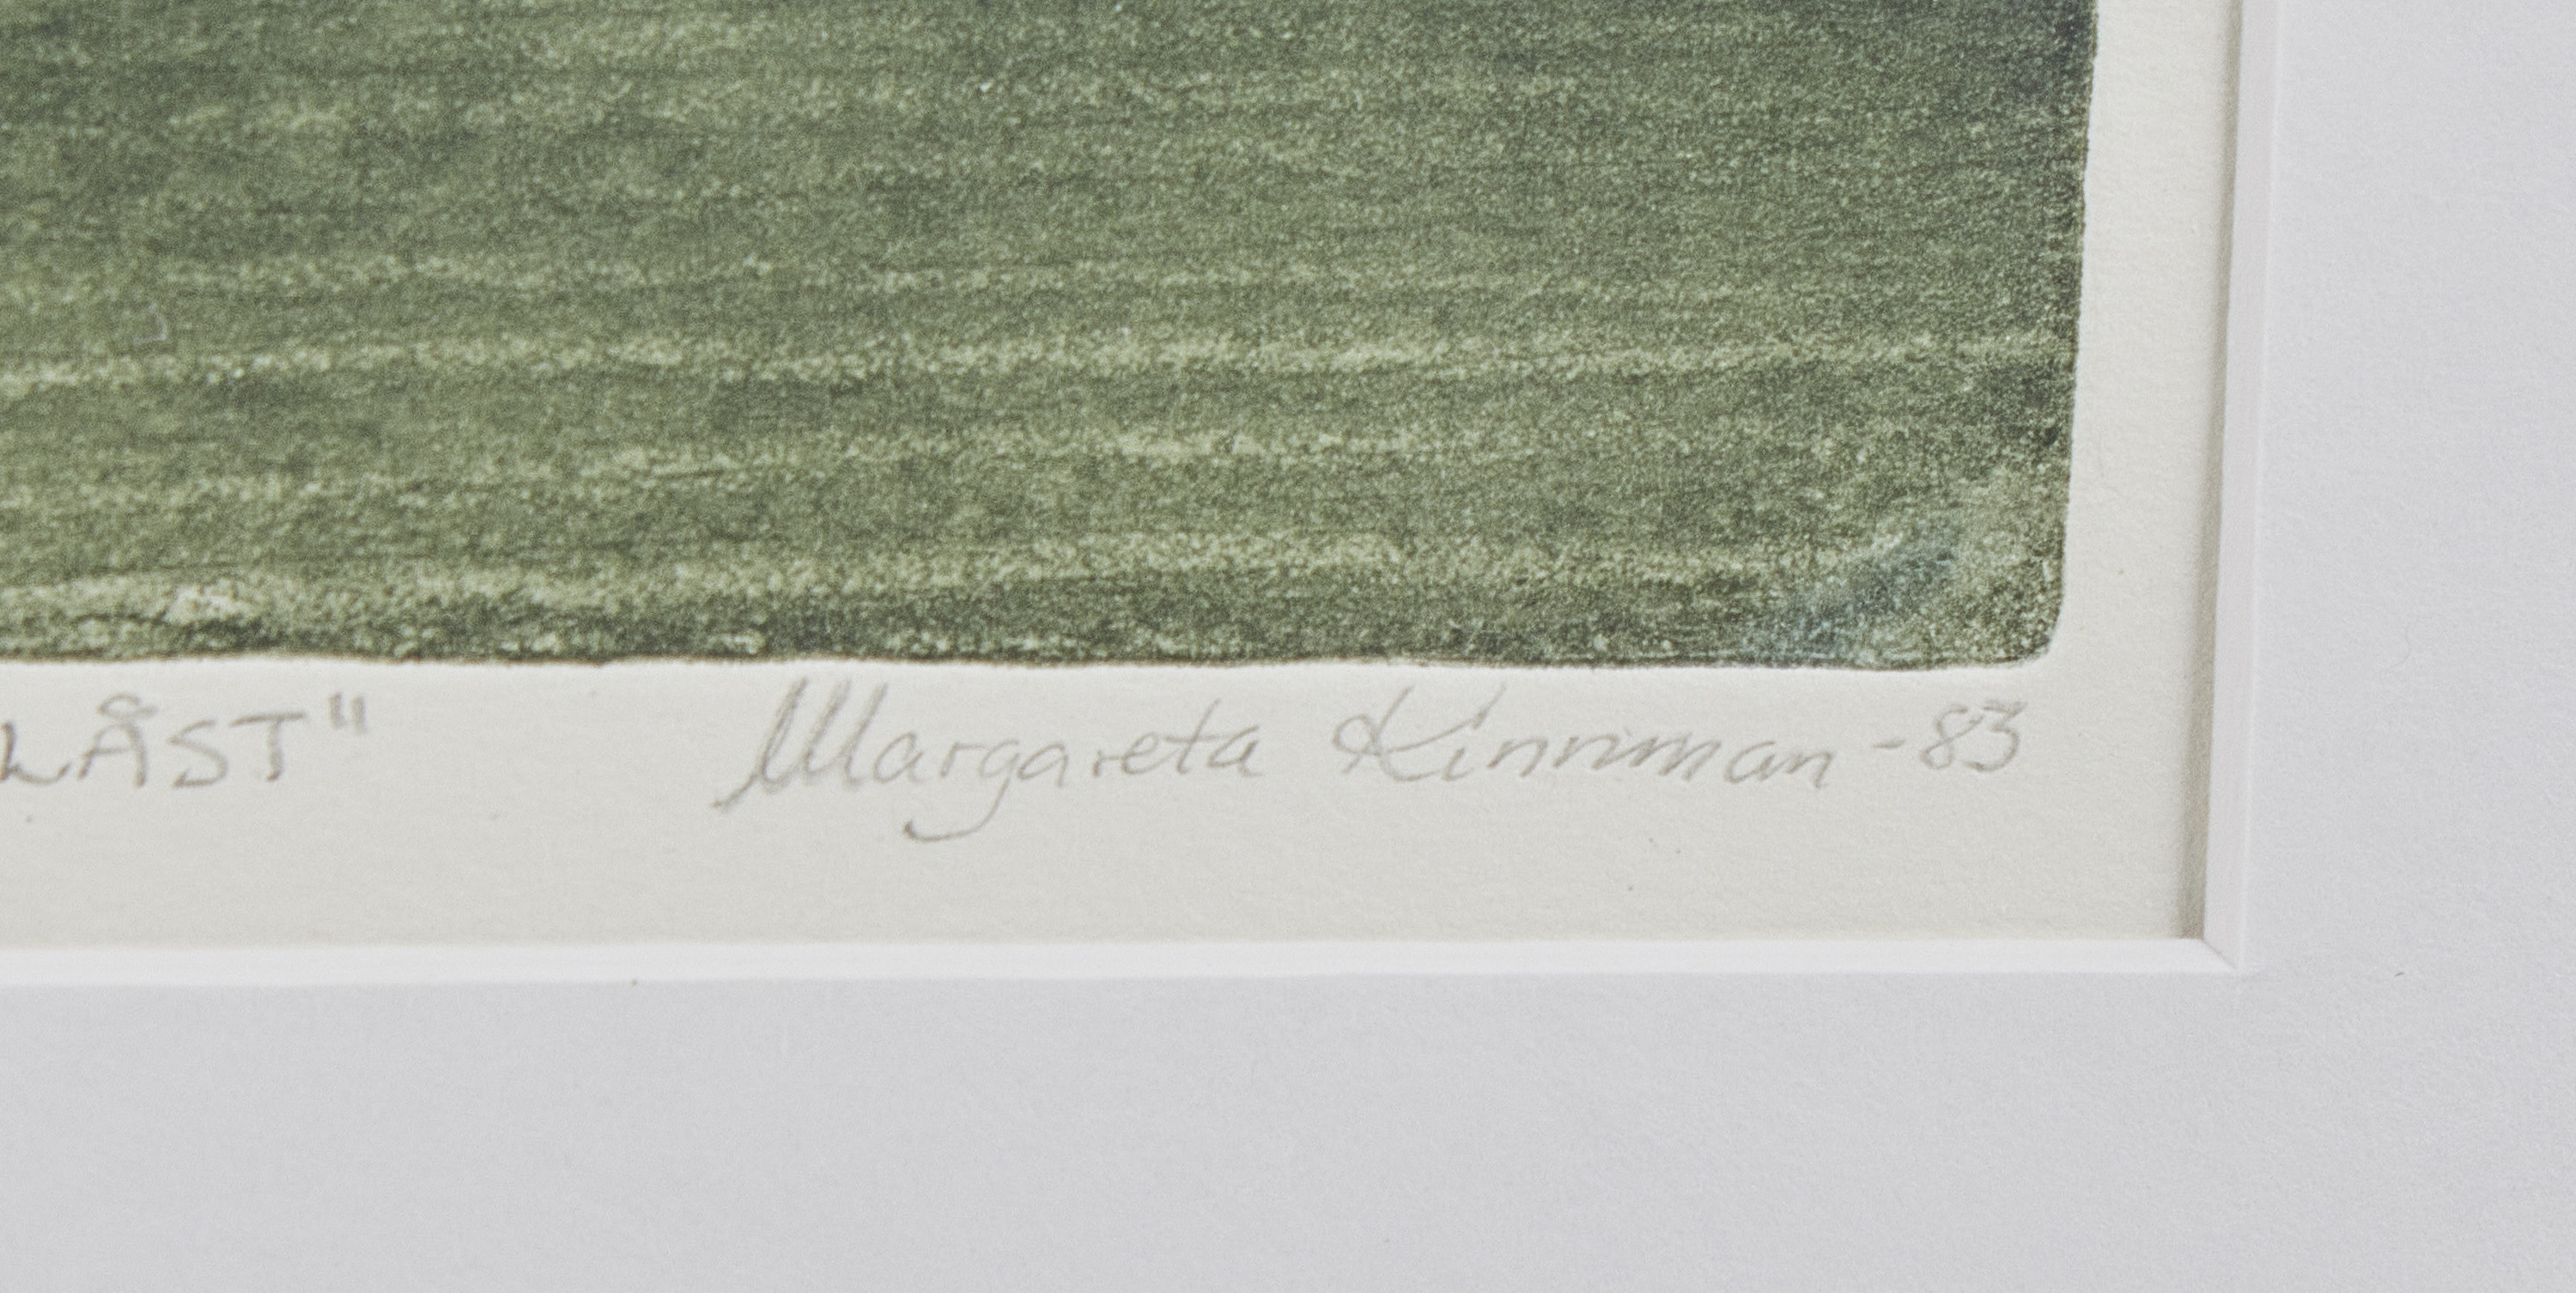 LÅST" Margareta Kinnman -83